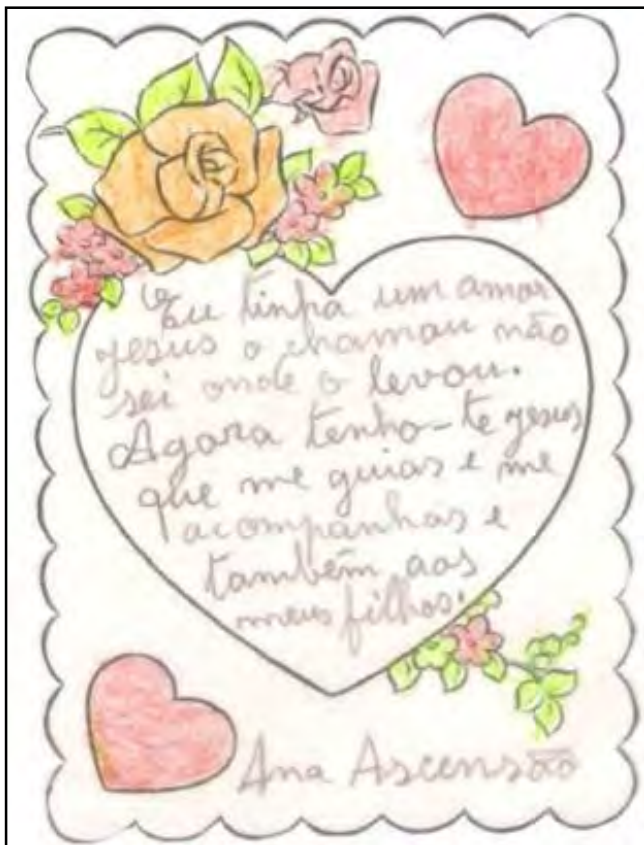 Eu tinha um amor
Jesus o chamou não
sei onde o levou.
Agora tenho-te Jesus
que me guias e me
acompanhas e
também aos
meus filhos.
Ana Ascensão